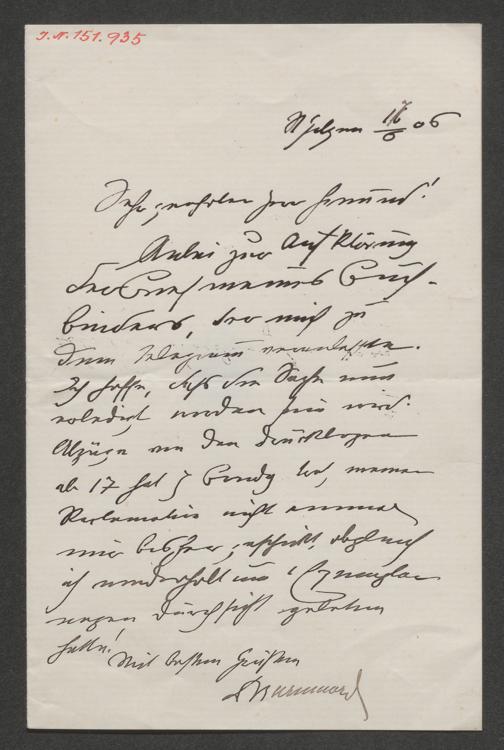 J.N. 151.935
17/6 06
Sehr geehrter Herr Freund!
Anbei zur Aufklärung
den Brief meines Buch-
binders, der mich zu
dem Telegramm veranlasste.
Ich hoffe, daß die Sache nun
erledigt werden wird.
Abzüge von den Druckbogen
ab 17 hat trotz meiner
Reclamation nicht einmal
mir bisher geschickt, obgleich
ich wiederholt um 1 Exemplar
wegen Durchsicht gebeten
hatte!
Mit besten Grüßen